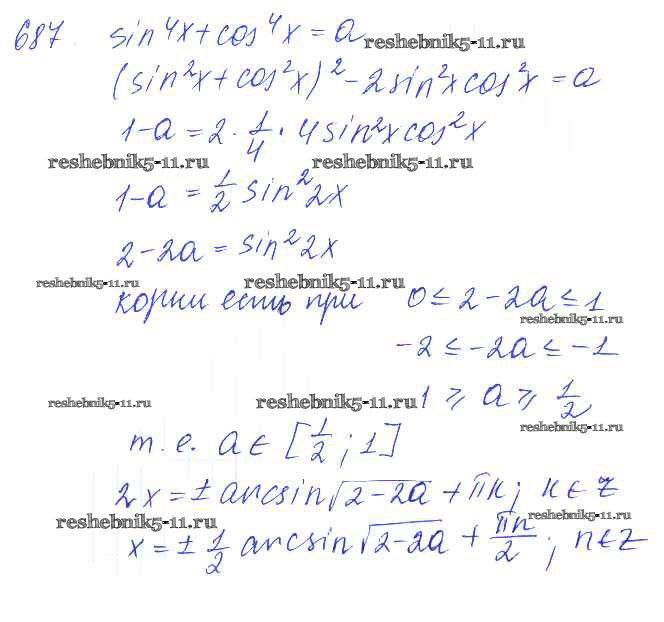 687 sin⁴x + cos⁴x = a reshebnik5-11.ru
(sin²x + cos²x)² - 2sin²xcos²x = a
1-a = 2 · 1/4 · 4sin²xcos²x
reshebnik5-11.ru reshebnik5-11.ru
1-a = 1/2 sin²2x
2-2a = sin²2x
reshebnik5-11.ru reshebnik5-11.ru
корни есть при 0 ≤ 2-2a ≤ 1
reshebnik5-11.ru
-2 ≤ -2a ≤ -1
reshebnik5-11.ru reshebnik5-11.ru 1 ≥ a ≥ 1/2
reshebnik5-11.ru
т.е. a ∈ [1/2; 1]
2x = ± arcsin√(2-2a) + πk; k ∈ Z
reshebnik5-11.ru reshebnik5-11.ru
x = ± 1/2 arcsin√(2-2a) + πn/2; n ∈ Z